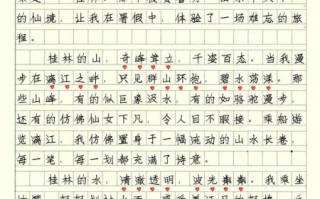 的仙境，让我在暑假中，体验了一场难忘的旅
程。
桂林的山，奇峰耸立，千姿百态。当我漫
步在漓江之畔，只见群山环抱，碧水荡漾。那
些山峰，有的似巨象汲水，有的如骆驼漫步，
还有的仿佛仙女下凡，令人目不暇接。乘船游
览漓江，我仿佛置身于一幅流动的山水长卷，
每一笔，每一划都充满了诗意。
桂林的水，清澈透明，波光粼粼。我乘坐